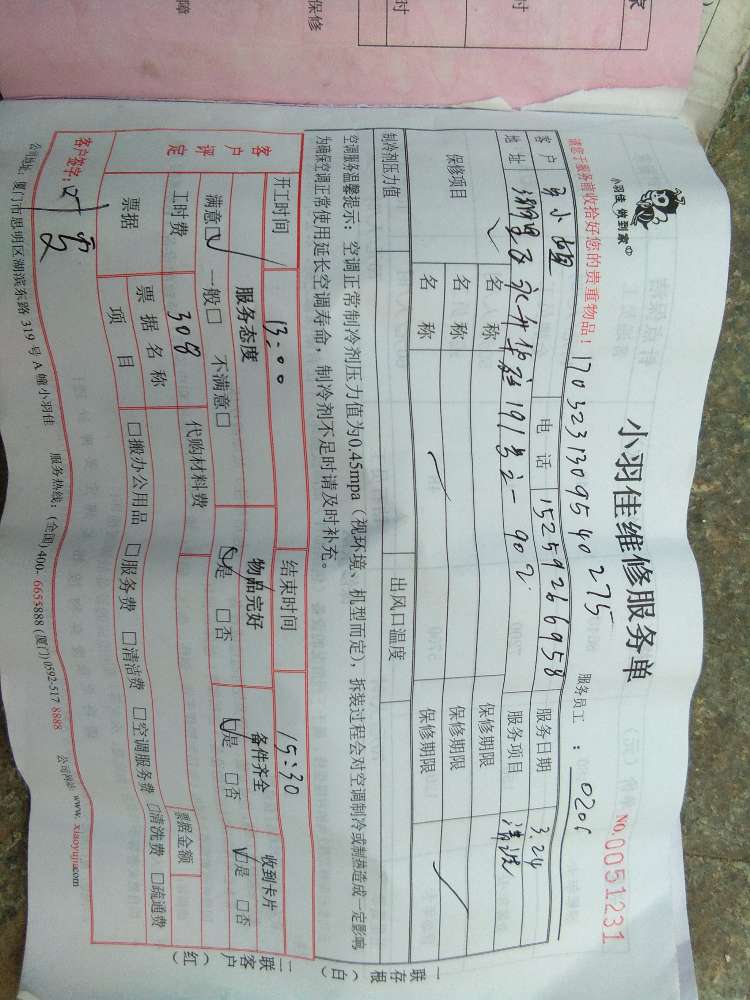 小羽佳 做到家
小羽佳维修服务单
NO.0051231
请您于服务前收拾好您的贵重物品！
1703231309540275
服务员工：0206
客户
电话 15259266958
服务日期 3.24
地址
服务项目 清洗
保修项目
名称 保修期限
名称 保修期限
名称 保修期限
制冷剂压力值 出风口温度
空调服务温馨提示：空调正常制冷剂压力值为0.45mpa（视环境、机型而定），拆装过程会对空调制冷或制热造成一定影响
为确保空调正常使用延长空调寿命，制冷剂不足时请及时补充。
开工时间 13:00 结束时间 15:30
客户评定
服务态度 物品完好 备件齐全 收到卡片
满意☑ 一般□ 不满意□ ☑是 □否 ☑是 □否 ☑是 □否
工时费 308 代购材料费
票据 票据名称 票据金额
项目 □搬办公用品 □服务费 □清洁费 □空调服务费 □清洗费 □疏通费
客户签字：
公司地址：厦门市思明区湖滨东路 319 号 A 幢小羽佳 服务热线：(全国) 400-6655888 (厦门) 0592-517 8888 公司网站：www.xiaoyujia.com
一联存根（白）
一联客户（红）
保修
障
时
时
家